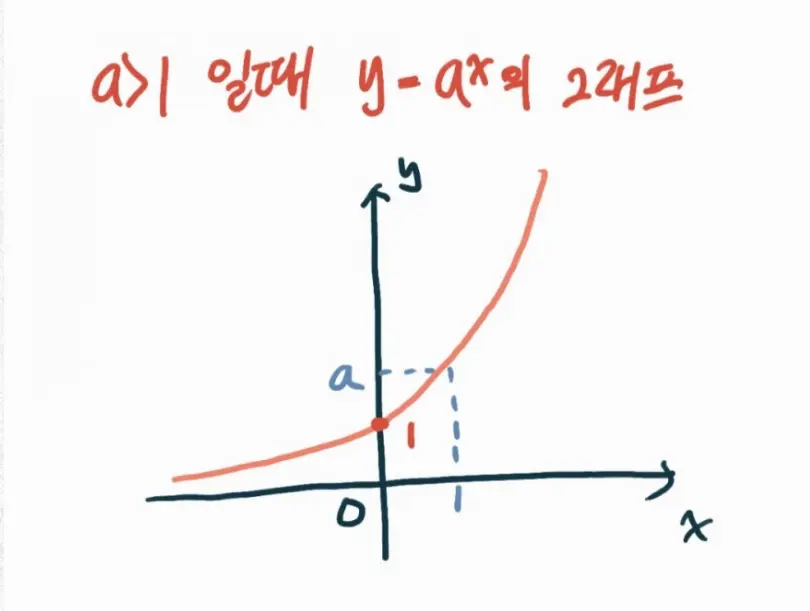 a>1 일때 y=aˣ의 그래프
y
a
1
0
1
x